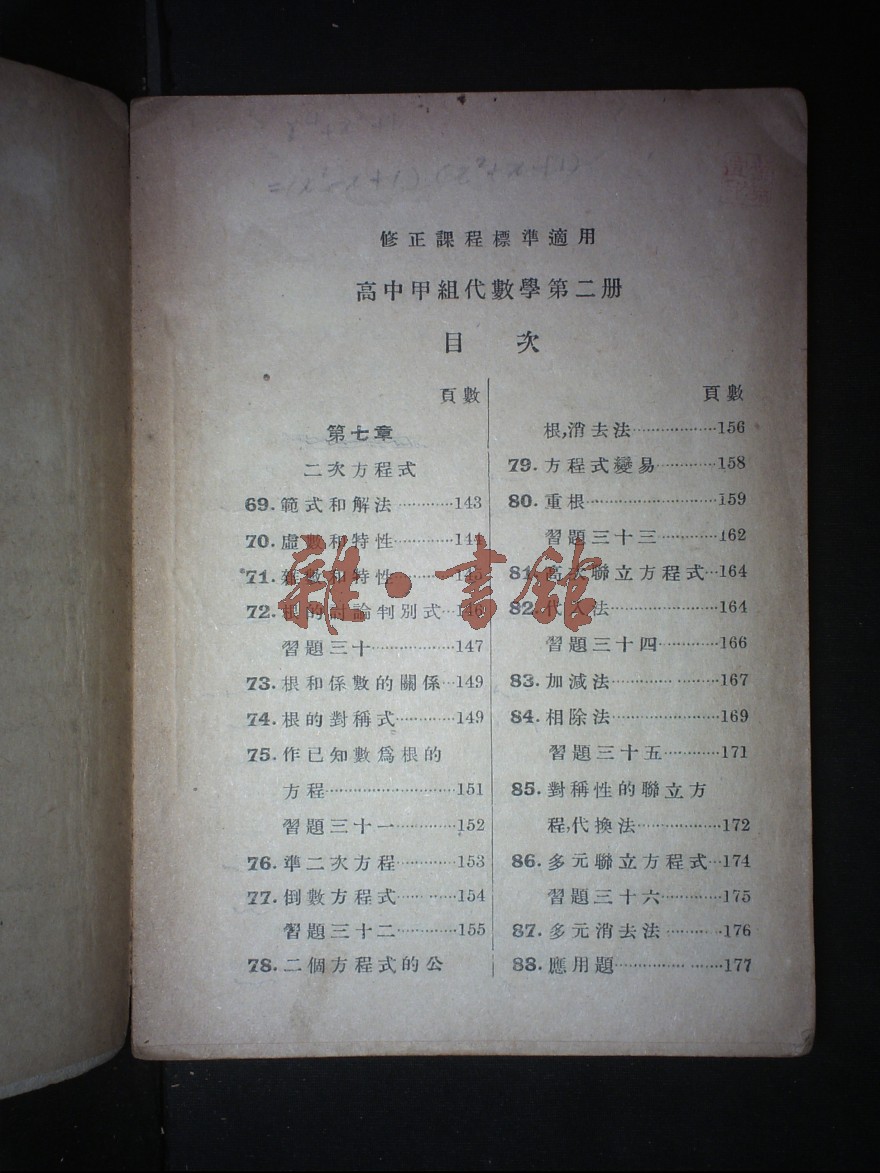 修正課程標準適用
高中甲組代數學第二册
目 次
頁數
第七章
二次方程式
69. 範式和解法…………143
70. 虛數和特性…………144
71. 雜數和特性…………145
72. 根的討論判別式…146
習題三十……………147
73. 根和係數的關係…149
74. 根的對稱式…………149
75. 作已知數爲根的
方程……………………151
習題三十一…………152
76. 準二次方程…………153
77. 倒數方程式…………154
習題三十二…………155
78. 二個方程式的公
頁數
根,消去法………………156
79. 方程式變易…………158
80. 重根……………………159
習題三十三…………162
81. 高次聯立方程式…164
82. 代入法…………………164
習題三十四…………166
83. 加減法…………………167
84. 相除法…………………169
習題三十五…………171
85. 對稱性的聯立方
程,代換法………………172
86. 多元聯立方程式…174
習題三十六…………175
87. 多元消去法…………176
88. 應用題…………………177
雜·書館